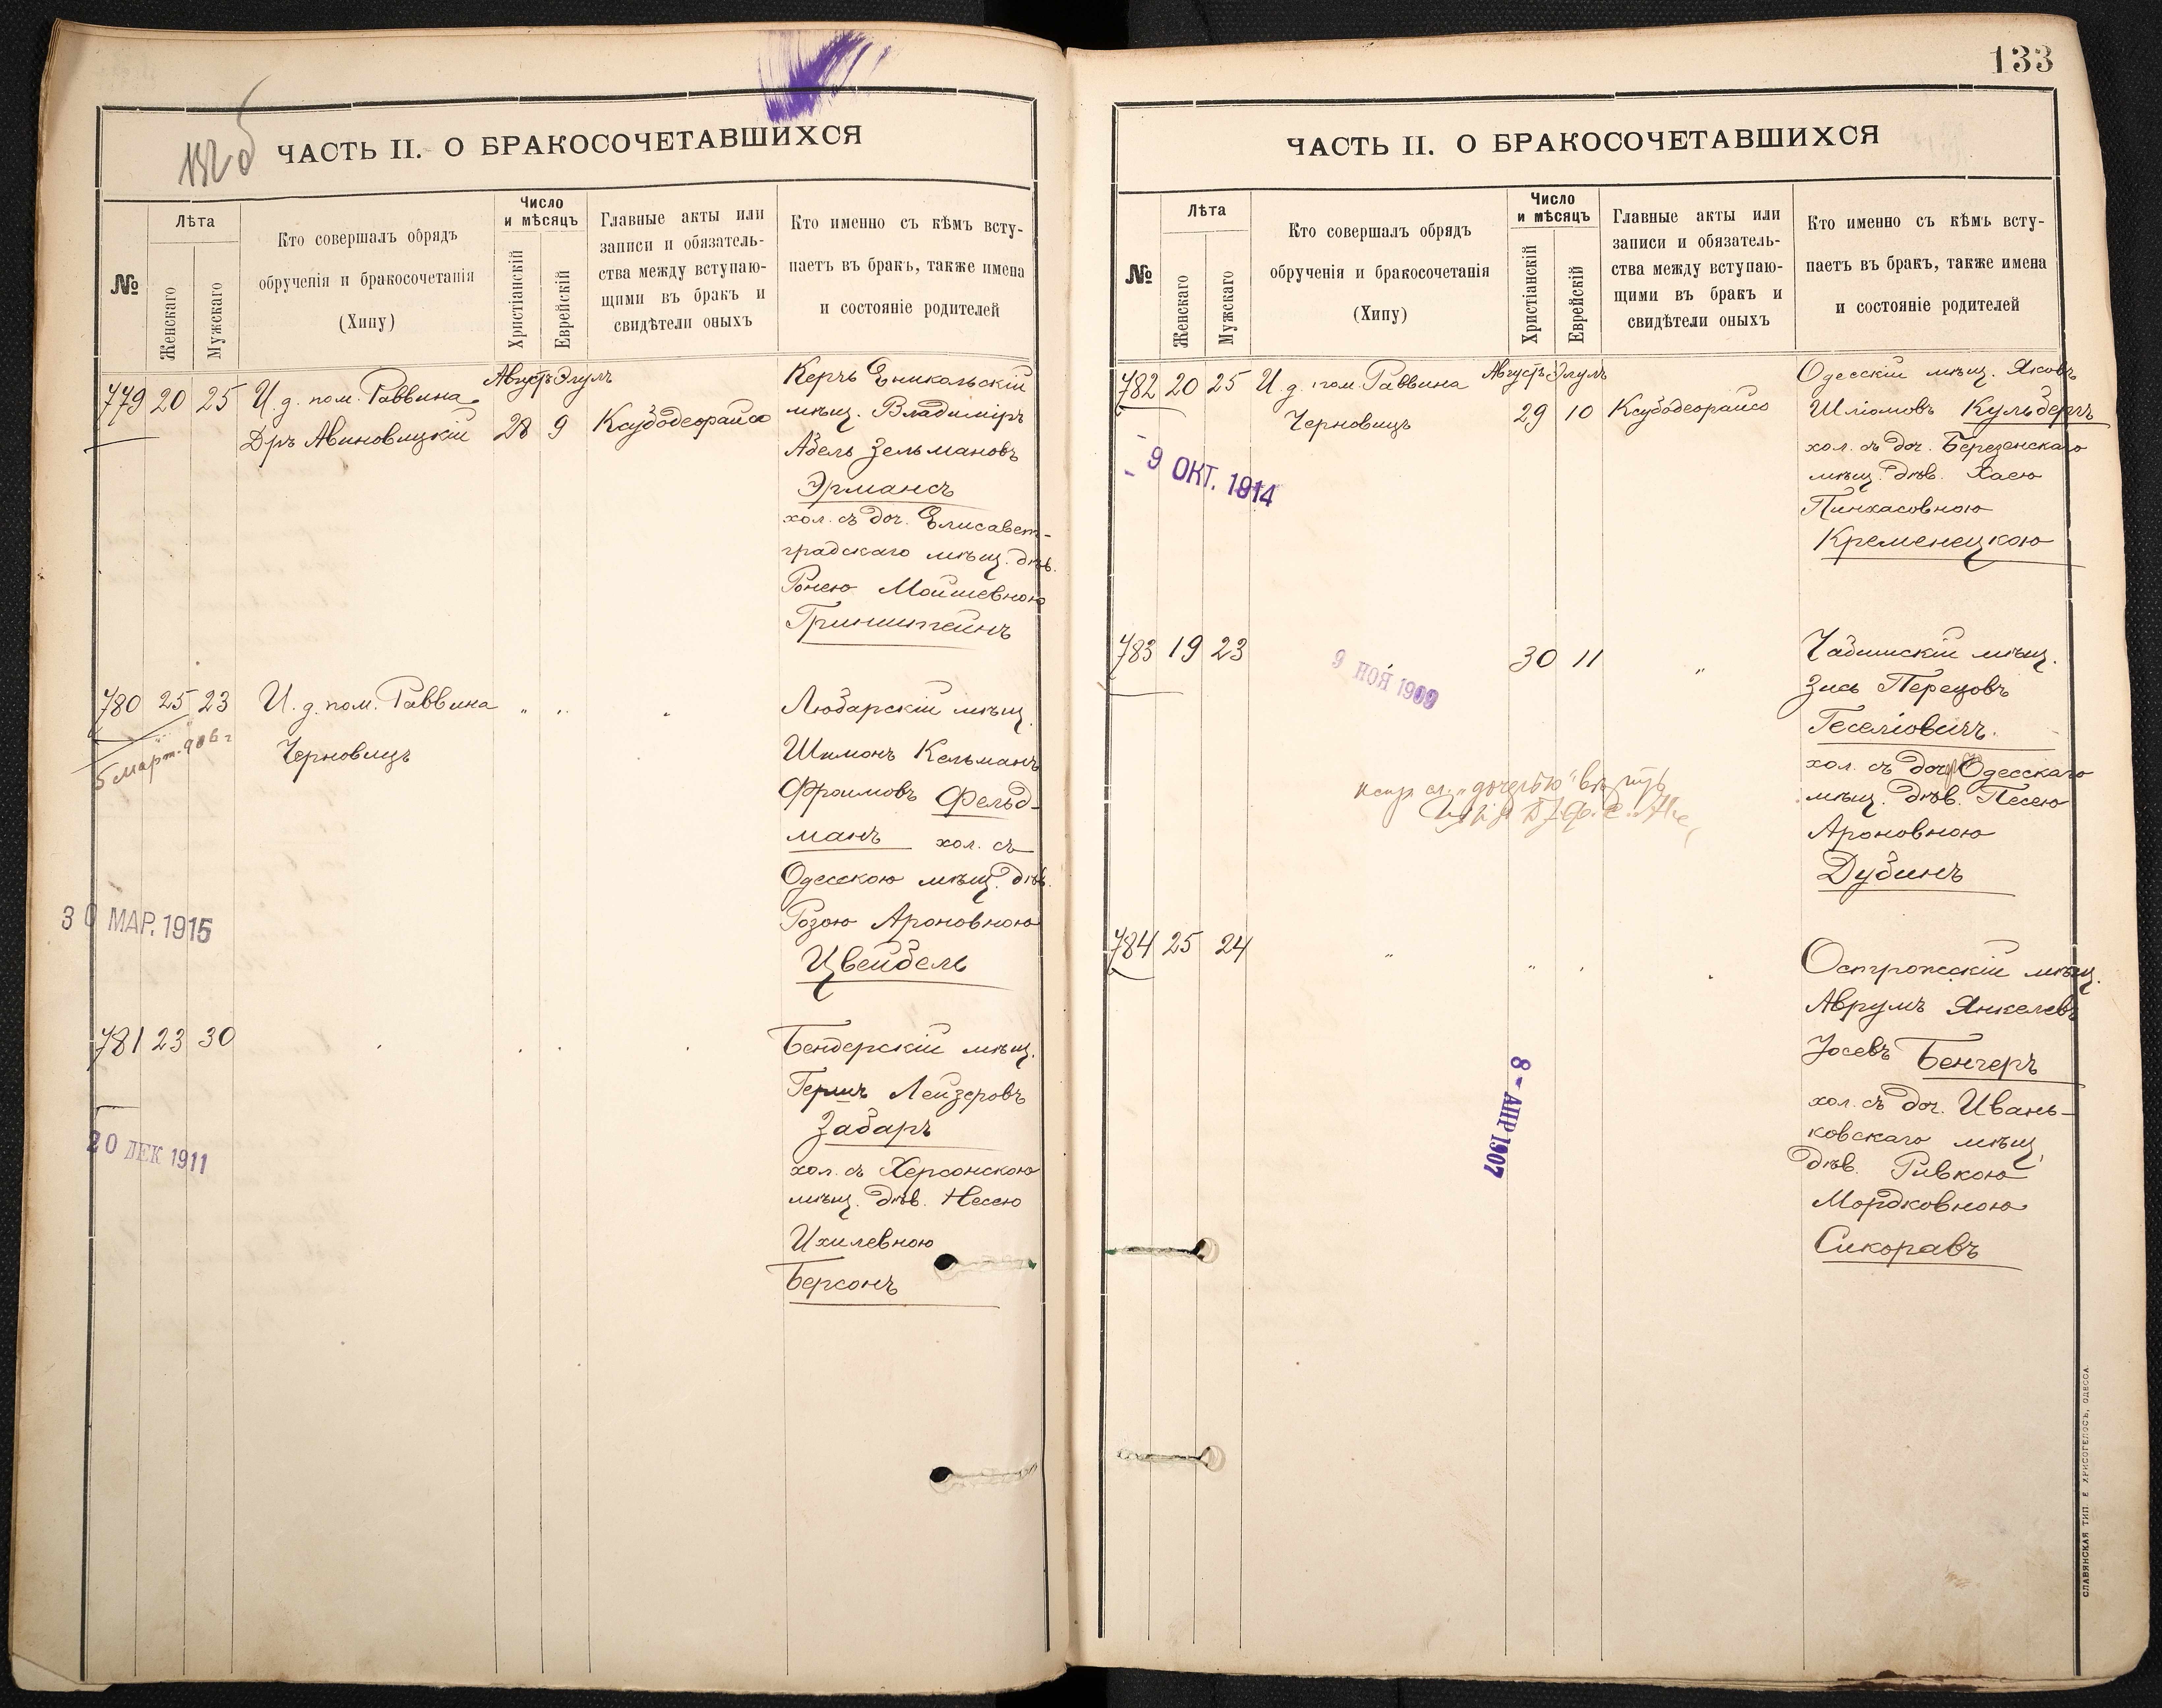 132 об
ЧАСТЬ II. О БРАКОСОЧЕТАВШИХСЯ
№
Лѣта
Женскаго
Мужскаго
Кто совершалъ обрядъ
обрученія и бракосочетанія
(Хипу)
Число
и мѣсяцъ
Христіанскій
Еврейскій
Главные акты или
записи и обязатель-
ства между вступаю-
щими въ бракъ и
свидѣтели оныхъ
Кто именно съ кѣмъ всту-
паетъ въ бракъ, также имена
и состояніе родителей
779 20 25 И. д. пом. Раввина
Дръ Авиновицкій
Августъ Элулъ
28 9 Ксубодеорайсо
Керчь Еникольскій
мѣщ. Владиміръ
Абель Зельмановъ
Эрмансъ
хол. съ доч. Елисавет-
градскаго мѣщ. дѣв.
Ронею Мошиевною
Гринштейнъ
780 25 23 И. д. пом. Раввина " " "
Черновицъ
5 март. 906 г
30 МАР. 1915
Любарскій мѣщ.
Шимонъ Кельманъ
Фроимовъ Фельд-
манъ хол. съ
Одесскою мѣщ. дѣв.
Розою Ароновною
Цвейбель
781 23 30
20 ДЕК 1911
Бендерскій мѣщ.
Гершъ Лейзеровъ
Забаръ
хол. съ Херсонскою
мѣщ. дѣв. Несею
Ихилевною
Берсонъ
133
ЧАСТЬ II. О БРАКОСОЧЕТАВШИХСЯ
№
Лѣта
Женскаго
Мужскаго
Кто совершалъ обрядъ
обрученія и бракосочетанія
(Хипу)
Число
и мѣсяцъ
Христіанскій
Еврейскій
Главные акты или
записи и обязатель-
ства между вступаю-
щими въ бракъ и
свидѣтели оныхъ
Кто именно съ кѣмъ всту-
паетъ въ бракъ, также имена
и состояніе родителей
782 20 25 И. д. пом. Раввина
Черновицъ
Августъ Элулъ
29 10 Ксубодеорайсо
- 9 ОКТ. 1914
Одесскій мѣщ. Яковъ
Шліомовъ Кульбергъ
хол. съ доч. Березенскаго
мѣщ. дѣв. Хаею
Пинхасовною
Кременецкою
783 19 23 30 11 "
9 НОЯ 1909
Чадишскій мѣщ.
Зись Перецовъ
Геселіовичъ.
хол. съ доч. Одесскаго
мѣщ. дѣв. Песею
Ароновною
Дубинъ
784 25 24 " " "
8 - АПР 1907
Острожскій мѣщ.
Аврумъ Янкелевъ
Іосевъ Бенчеръ
хол. съ доч. Ивань-
ковскаго мѣщ.
дѣв. Ривкою
Мордковною
Сикоравъ
СЛАВЯНСКАЯ ТИП. Е. ХРИСОГЕЛОСЪ, ОДЕССА.